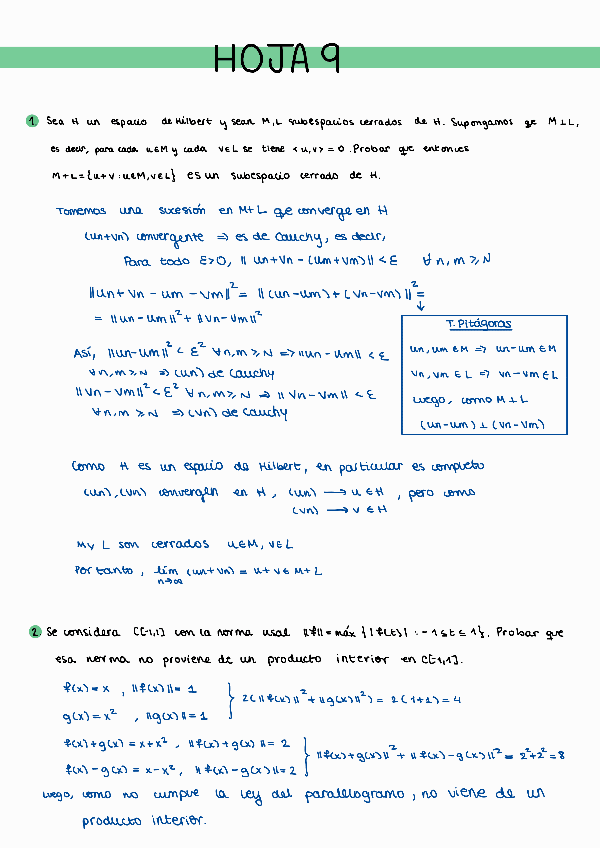 HOJA 9
1 Sea H un espacio de Hilbert y sean M,L subespacios cerrados de H. Supongamos qe M⊥L,
es decir, para cada u∈M y cada v∈L se tiene <u,v> = 0. Probar que entonces
M+L={u+v: u∈M, v∈L} es un subespacio cerrado de H.
Tomemos una sucesión en M+L qe converge en H
(un+vn) convergente ⇒ es de Cauchy, es decir,
Para todo ε>0, ‖un+vn-(um+vm)‖<ε ∀n,m≥N
‖un+vn-um-vm‖² = ‖(un-um)+(vn-vm)‖² =
= ‖un-um‖²+‖vn-vm‖²
T. Pitágoras
un,um∈M ⇒ un-um∈M
vn,vm∈L ⇒ vn-vm∈L
luego, como M⊥L
(un-um)⊥(vn-vm)
Así, ‖un-um‖²<ε² ∀n,m≥N ⇒ ‖un-um‖<ε
∀n,m≥N ⇒ (un) de Cauchy
‖vn-vm‖²<ε² ∀n,m≥N ⇒ ‖vn-vm‖<ε
∀n,m≥N ⇒ (vn) de Cauchy
Como H es un espacio de Hilbert, en particular es completo
(un),(vn) convergen en H, (un) → u∈H, pero como
(vn) → v∈H
M y L son cerrados u∈M, v∈L
Por tanto, lím n→∞ (un+vn) = u+v∈M+L
2 Se considera C[-1,1] con la norma usual ‖f‖=máx{|f(t)| : -1≤t≤1}. Probar que
esa norma no proviene de un producto interior en C[-1,1].
f(x)=x, ‖f(x)‖=1
g(x)=x², ‖g(x)‖=1
2(‖f(x)‖²+‖g(x)‖²)=2(1+1)=4
f(x)+g(x)=x+x², ‖f(x)+g(x)‖=2
f(x)-g(x)=x-x², ‖f(x)-g(x)‖=2
‖f(x)+g(x)‖²+‖f(x)-g(x)‖²=2²+2²=8
luego, como no cumple la ley del paralelogramo, no viene de un
producto interior.